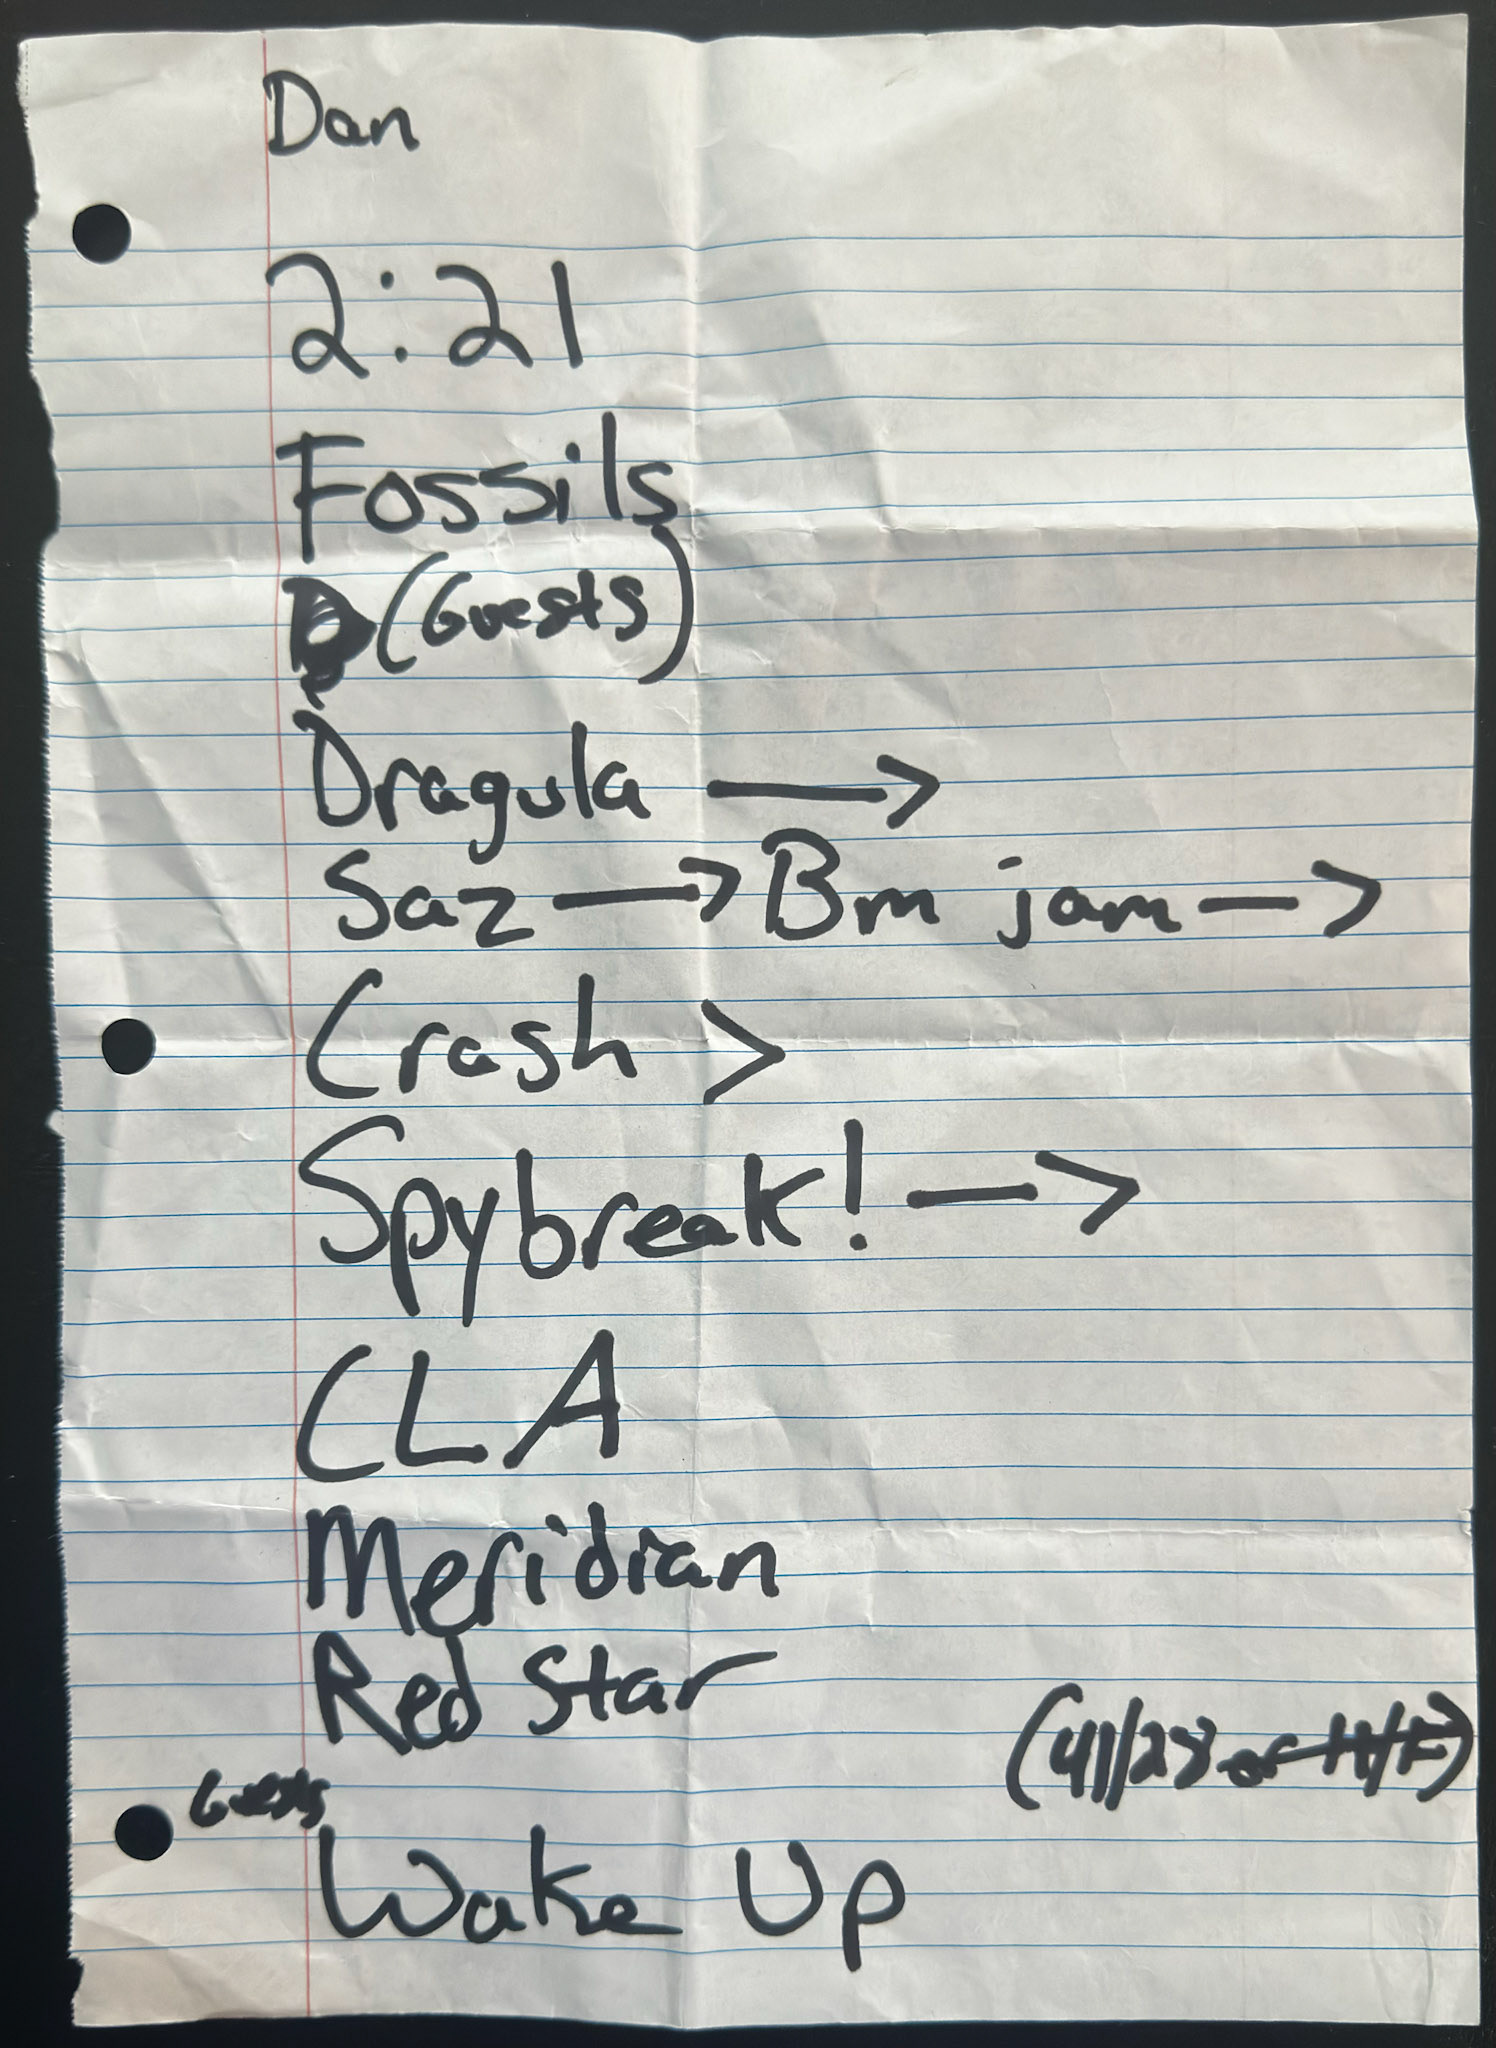 Dan
2:21
Fossils
(Guests)
Dragula →
Saz → Bm jam →
Crash >
Spybreak! →
CLA
Meridian
Red Star
(41/28 or H/F)
Guests
Wake Up